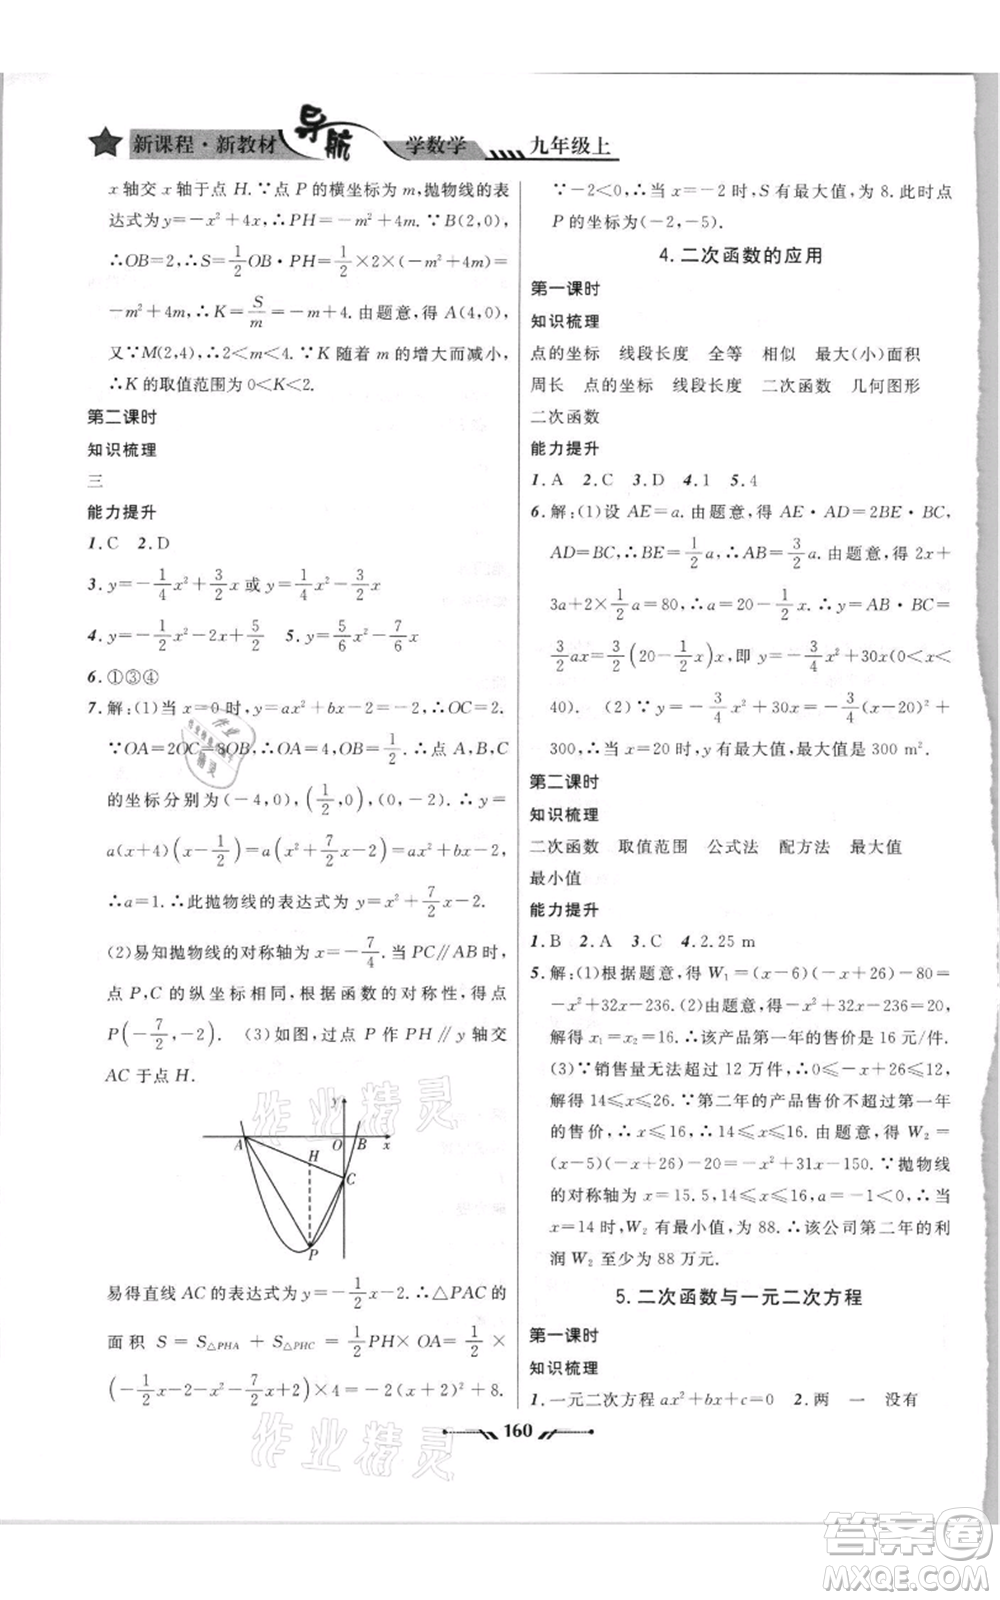 新课程·新教材 导航 学数学 九年级上
x 轴交 x 轴于点 H.∵点 P 的横坐标为 m,抛物线的表
达式为 y=-x²+4x,∴PH=-m²+4m.∵B(2,0),
∴OB=2,∴S=1/2 OB·PH=1/2×2×(-m²+4m)=
-m²+4m,∴K=S/m=-m+4.由题意,得 A(4,0),
又∵M(2,4),∴2<m<4.∵K 随着 m 的增大而减小,
∴K 的取值范围为 0<K<2.
第二课时
知识梳理
三
能力提升
1.C 2.D
3.y=-1/4x²+3/2x 或 y=1/4x²+1/2x
4.y=-1/2x²-2x+5/2 5.y=5/6x²-7/6x
6.①③④
7.解:(1)当 x=0 时,y=ax²+bx-2=-2,∴OC=2.
∵OA=2OC=8OB,∴OA=4,OB=1/2.∴点 A,B,C
的坐标分别为(-4,0),(1/2,0),(0,-2).∴y=
a(x+4)(x-1/2)=a(x²+7/2x-2)=ax²+bx-2.
∴a=1.∴此抛物线的表达式为 y=x²+7/2x-2.
(2)易知抛物线的对称轴为 x=-7/4.当 PC∥AB 时,
点 P,C 的纵坐标相同,根据函数的对称性,得点
P(-7/2,-2). (3)如图,过点 P 作 PH∥y 轴交
AC 于点 H.
y
A O B x
H
C
P
易得直线 AC 的表达式为 y=-1/2x-2.∴△PAC 的
面积 S=S△PHA+S△PHC=1/2PH×OA=1/2×
(-1/2x-2-x²-7/2x+2)×4=-2(x+2)²+8.
160
∵-2<0,∴当 x=-2 时,S 有最大值,为 8.此时点
P 的坐标为(-2,-5).
4.二次函数的应用
第一课时
知识梳理
点的坐标 线段长度 全等 相似 最大(小)面积
周长 点的坐标 线段长度 二次函数 几何图形
二次函数
能力提升
1.A 2.C 3.D 4.1 5.4
6.解:(1)设 AE=a.由题意,得 AE·AD=2BE·BC,
AD=BC,∴BE=1/2a,∴AB=3/2a.由题意,得 2x+
3a+2×1/2a=80,∴a=20-1/2x.∴y=AB·BC=
3/2ax=3/2(20-1/2x)x,即 y=-3/4x²+30x(0<x<
40). (2)∵y=-3/4x²+30x=-3/4(x-20)²+
300,∴当 x=20 时,y 有最大值,最大值是 300 m².
第二课时
知识梳理
二次函数 取值范围 公式法 配方法 最大值
最小值
能力提升
1.B 2.A 3.C 4.2.25 m
5.解:(1)根据题意,得 W₁=(x-6)(-x+26)-80=
-x²+32x-236.(2)由题意,得-x²+32x-236=20,
解得 x₁=x₂=16.∴该产品第一年的售价是 16 元/件.
(3)∵销售量无法超过 12 万件,∴-x+26≤12.解
得 14≤x≤26.∵第二年的产品售价不超过第一年
的售价,∴x≤16,∴14≤x≤16.由题意,得 W₂=
(x-5)(-x+26)-20=-x²+31x-150.∵抛物线
的对称轴为 x=15.5,14≤x≤16,a=-1<0,∴当
x=14 时,W₂ 有最小值,为 88.∴该公司第二年的利
润 W₂ 至少为 88 万元.
5.二次函数与一元二次方程
第一课时
知识梳理
1.一元二次方程 ax²+bx+c=0 2.两 一 没有
作业精灵
作业精灵
答案卷
MXQE.COM